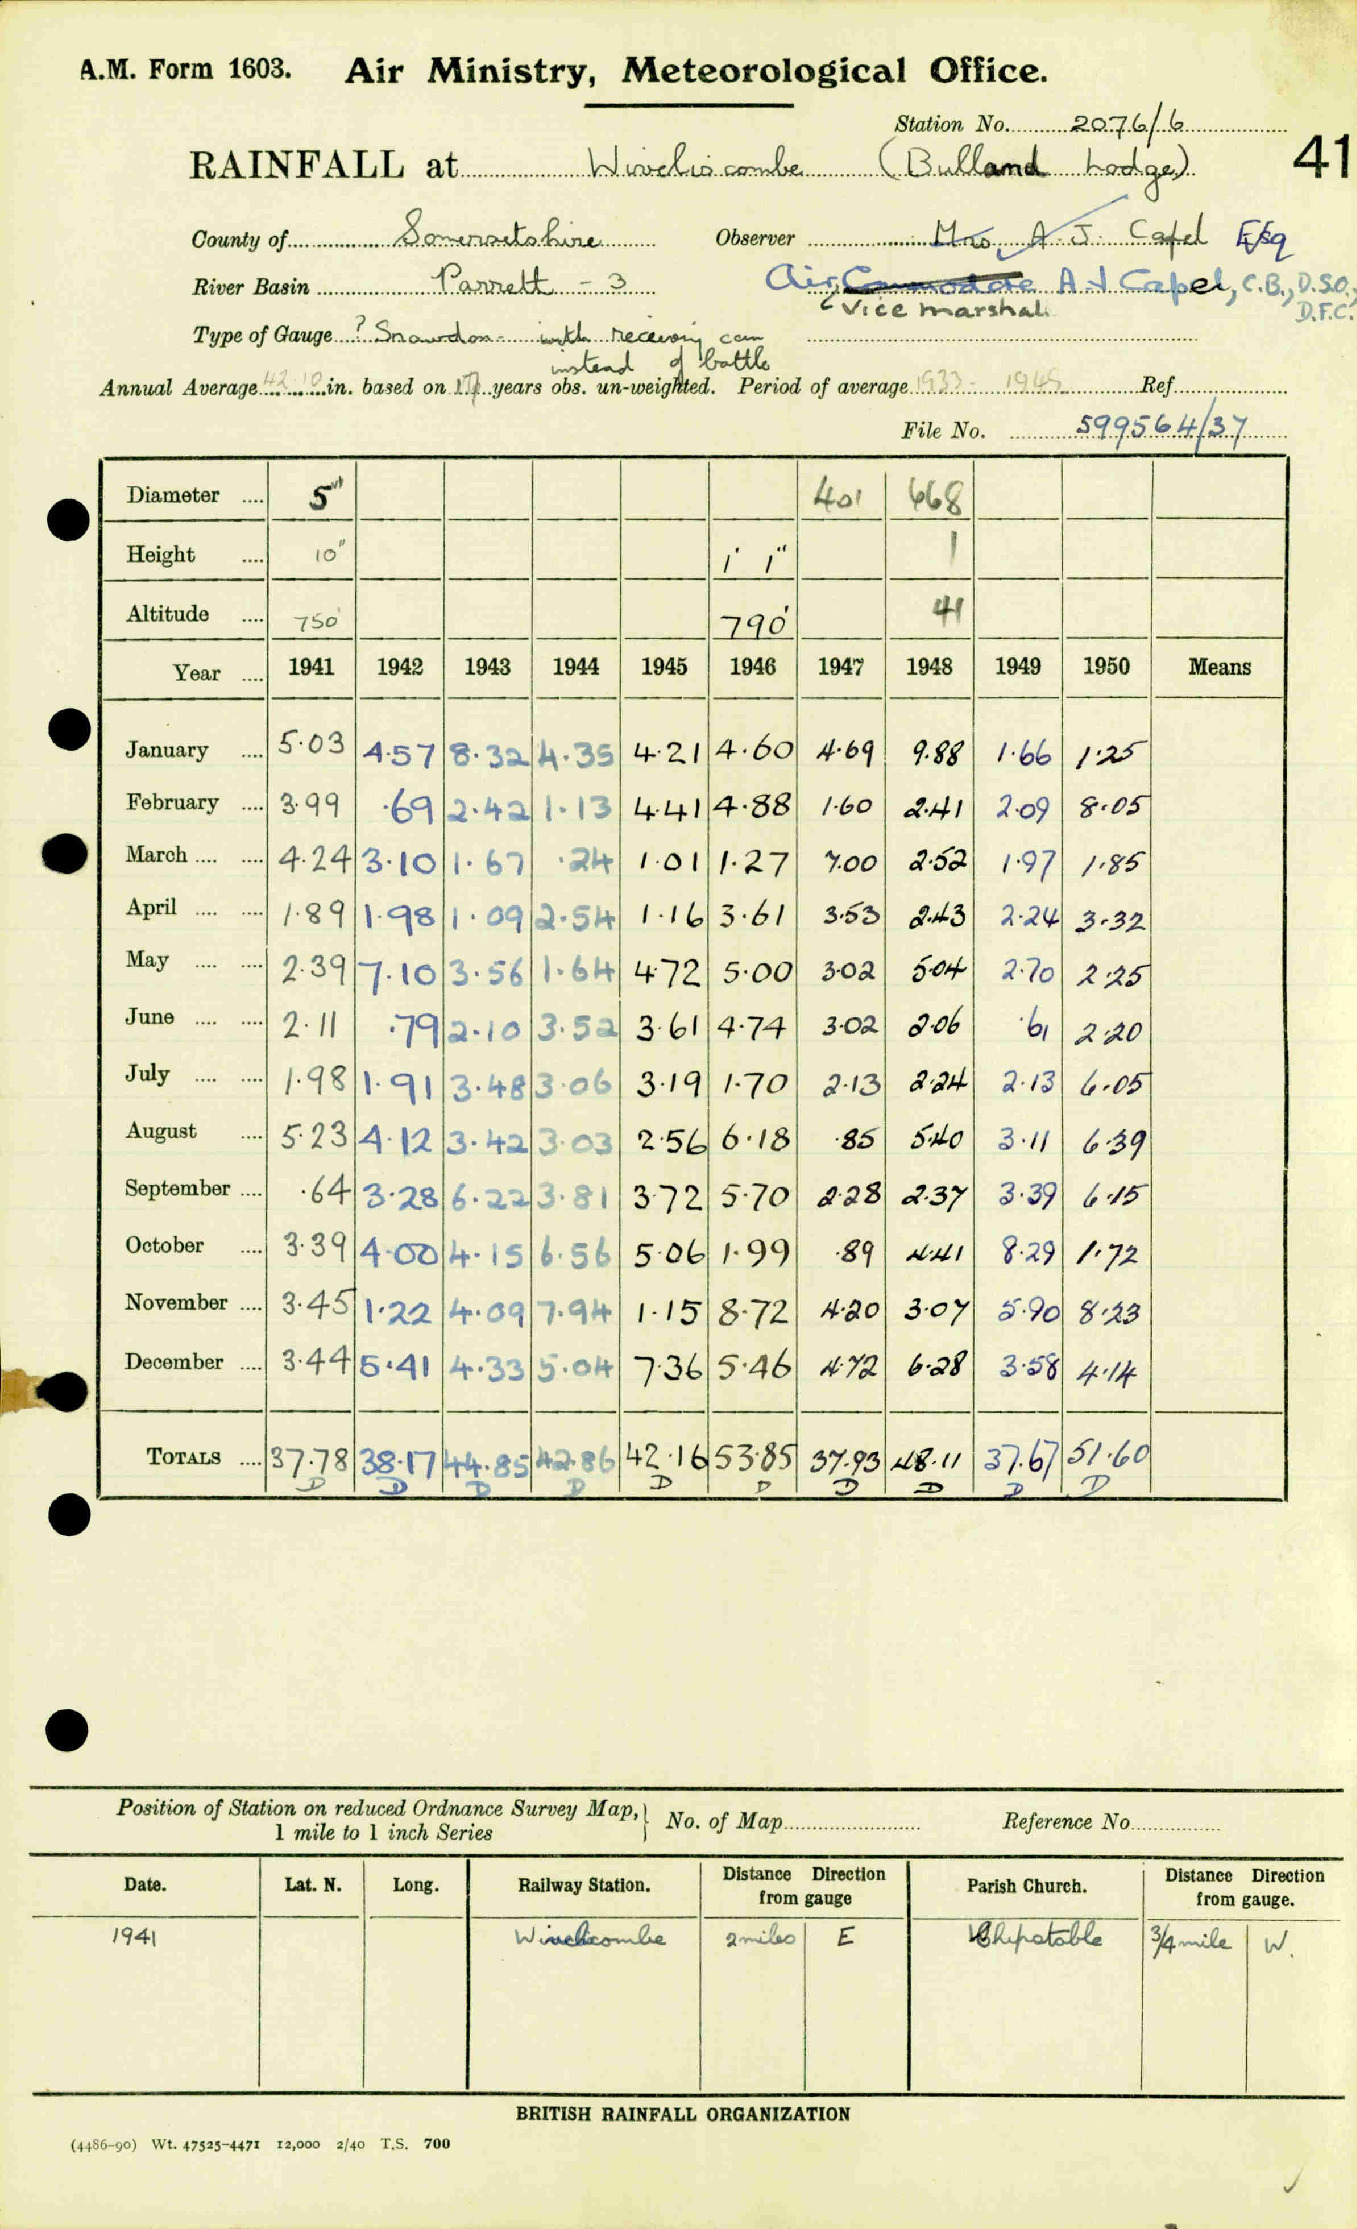 A.M. Form 1603. Air Ministry, Meteorological Office.
Station No. 2076/6
RAINFALL at Wiveliscombe (Bulland Lodge) 41
County of Somersetshire Observer Mrs. A. J. Capel Esq
River Basin Parrett - 3 Air Commodore A J Capel, C.B., D.S.O.,
Vice marshal D.F.C.
Type of Gauge ? Snowdon - with receiving can
instead of bottle
Annual Average 42.10 in. based on 17 years obs. un-weighted. Period of average 1933 - 1949 Ref.
File No. 599564/37
Diameter 5" 401 668
Height 10" 1' 1" 1
Altitude 750' 790' 41
Year 1941 1942 1943 1944 1945 1946 1947 1948 1949 1950 Means
January 5.03 4.57 8.32 4.35 4.21 4.60 4.69 9.88 1.66 1.25
February 3.99 .69 2.42 1.13 4.41 4.88 1.60 2.41 2.09 8.05
March 4.24 3.10 1.67 .24 1.01 1.27 7.00 2.52 1.97 1.85
April 1.89 1.98 1.09 2.54 1.16 3.61 3.53 2.43 2.24 3.32
May 2.39 7.10 3.56 1.64 4.72 5.00 3.02 5.04 2.70 2.25
June 2.11 .79 2.10 3.52 3.61 4.74 3.02 2.06 .61 2.20
July 1.98 1.91 3.48 3.06 3.19 1.70 2.13 2.24 2.13 6.05
August 5.23 4.12 3.42 3.03 2.56 6.18 .85 5.40 3.11 6.39
September .64 3.28 6.22 3.81 3.72 5.70 2.28 2.37 3.39 6.15
October 3.39 4.00 4.15 6.56 5.06 1.99 .89 4.41 8.29 1.72
November 3.45 1.22 4.09 7.94 1.15 8.72 4.20 3.07 5.90 8.23
December 3.44 5.41 4.33 5.04 7.36 5.46 4.72 6.28 3.58 4.14
TOTALS 37.78 38.17 44.85 42.86 42.16 53.85 37.93 48.11 37.67 51.60
D D D D D D D D D D
Position of Station on reduced Ordnance Survey Map,
1 mile to 1 inch Series } No. of Map Reference No.
Date. Lat. N. Long. Railway Station. Distance Direction from gauge Parish Church. Distance Direction from gauge.
1941 Wiveliscombe 2 miles E Chipstable 3/4 mile W.
BRITISH RAINFALL ORGANIZATION
(4486-90) Wt. 47525-4471 12,000 2/40 T.S. 700